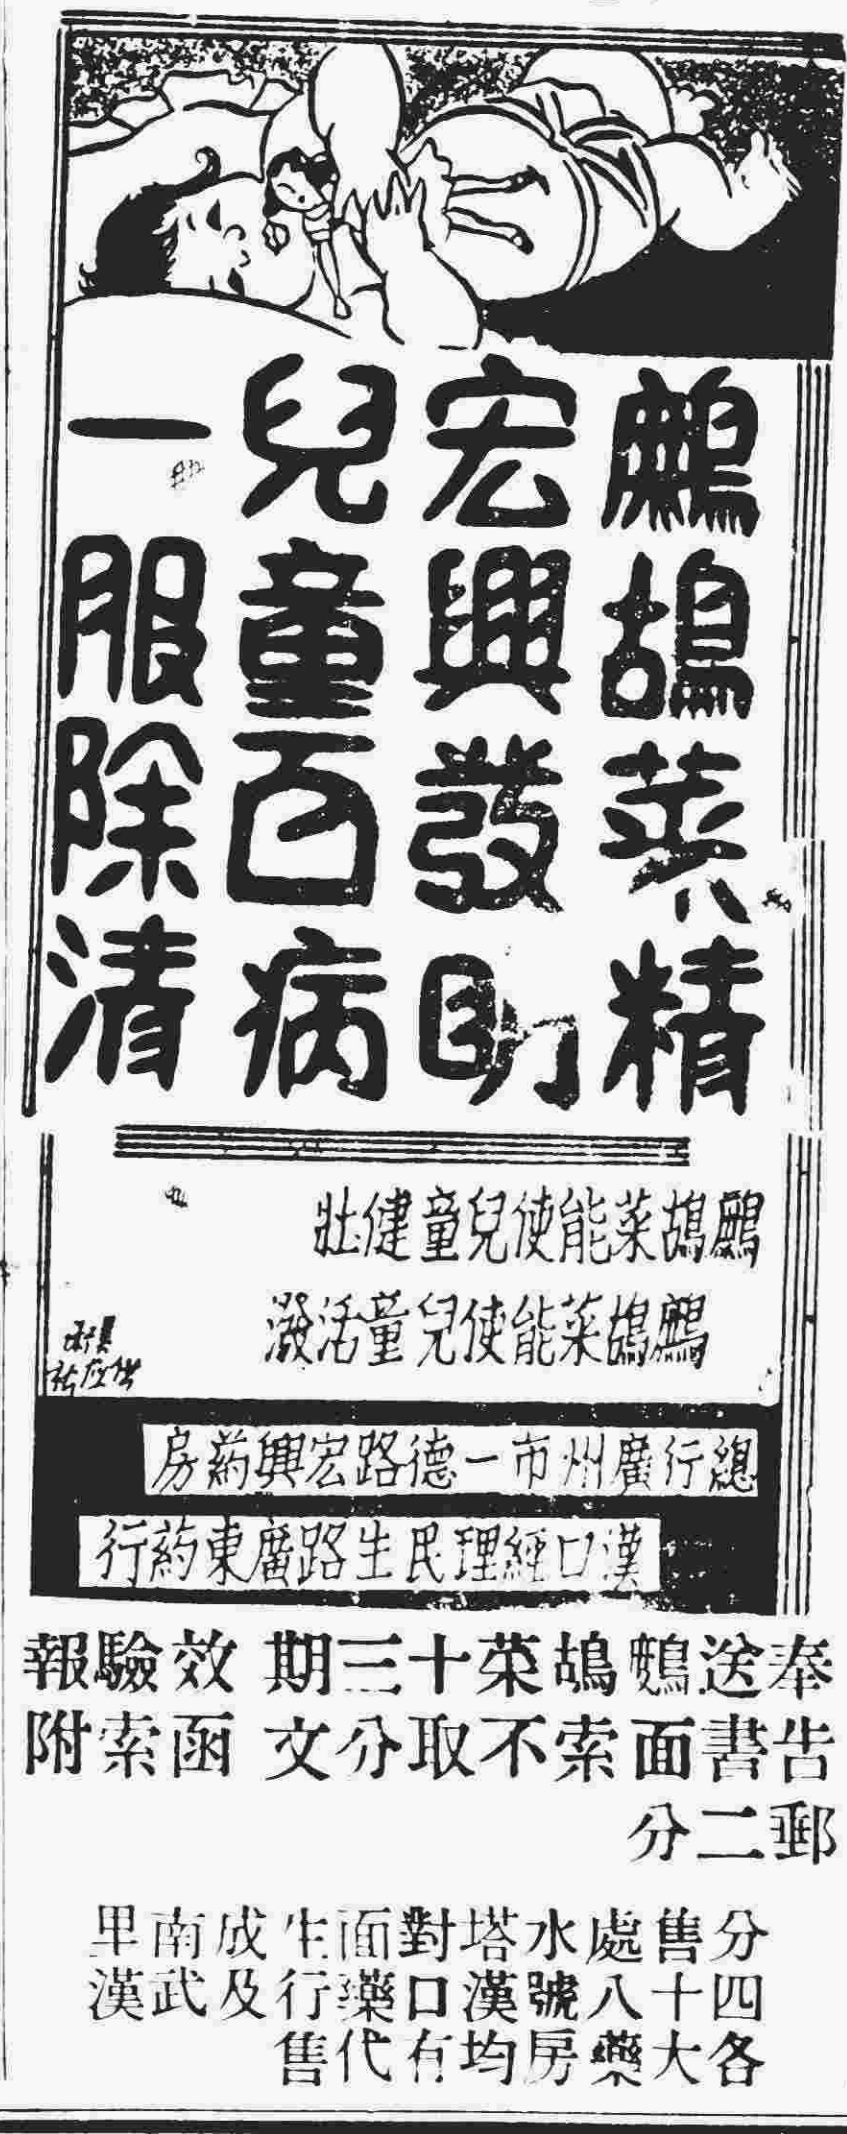 鷓鴣菜精
宏興發明
兒童百病
一服除清
鷓鴣菜能使兒童健壯
鷓鴣菜能使兒童活潑
總行廣州市一德路宏興葯房
漢口經理民生路廣東葯行
奉送鷓鴣菜十三期效驗報
告書面索不取分文函索附
郵二分
分售處水塔對面生成南里
四十八號漢口藥行及武漢
各大藥房均有代售